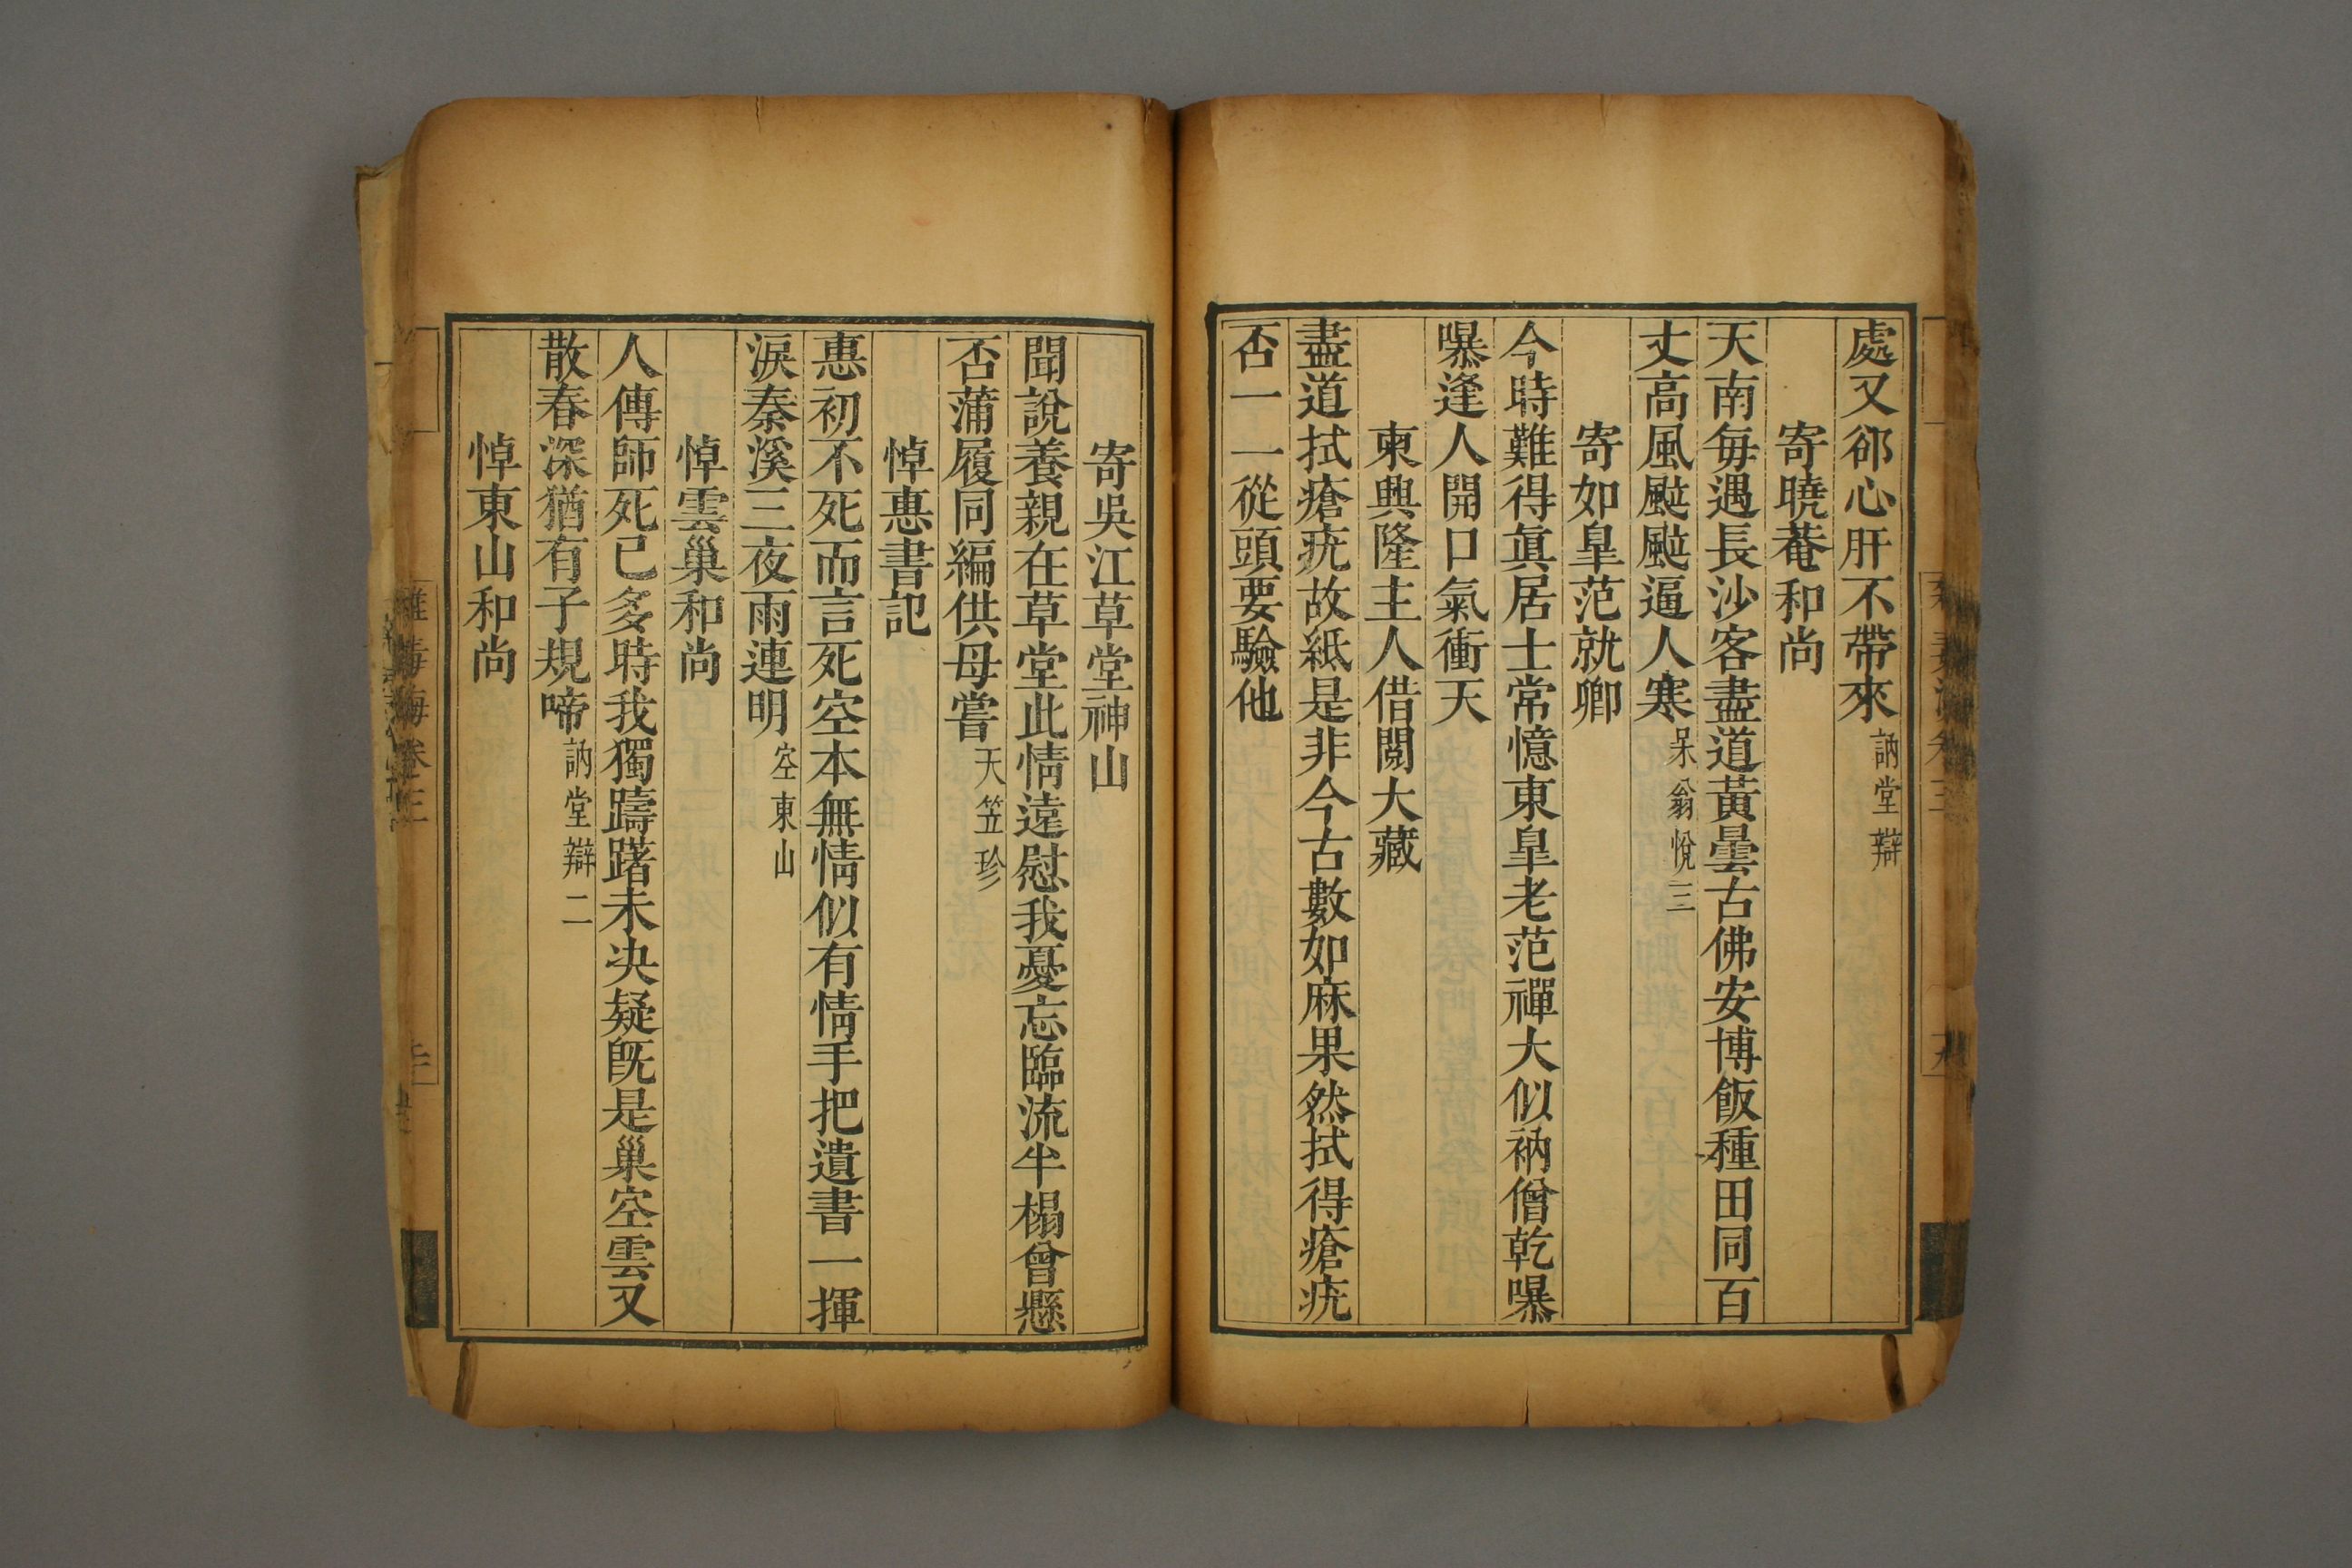 處又郤心肝不帶來訥堂辯
寄曉菴和尚
天南每遇長沙客盡道黃曇古佛安博飯種田同百
丈高風颭颭逼人寒呆翁悅三
寄如臯范就卿
今時難得眞居士常憶東臯老范禪大似衲僧乾嚗
嚗逢人開口氣衝天
柬興隆主人借閱大藏
盡道拭瘡疣故紙是非今古數如麻果然拭得瘡疣
否一一從頭要驗他
寄吳江草堂神山
聞說養親在草堂此情遠慰我憂忘臨流半榻曾懸
否蒲履同編供母嘗天笠珍
悼惠書記
惠初不死而言死空本無情似有情手把遺書一揮
淚秦溪三夜雨連明空東山
悼雲巢和尚
人傳師死已多時我獨躊躇未決疑旣是巢空雲又
散春深猶有子規啼訥堂辯二
悼東山和尚
卷三